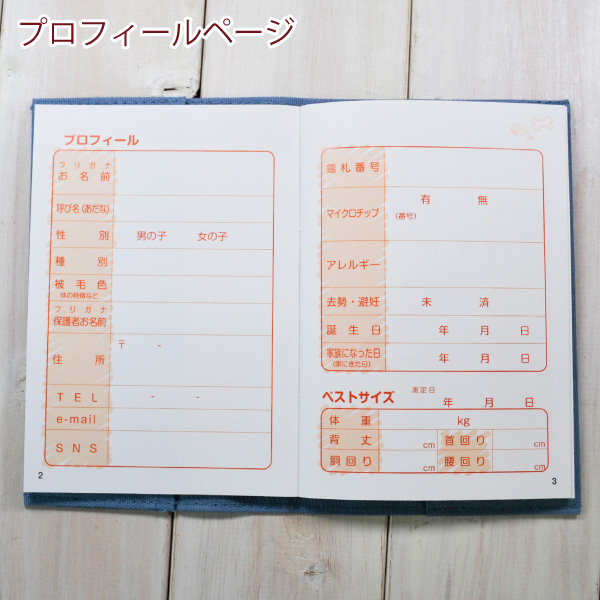 プロフィールページ
プロフィール
フリガナ
お名前
呼び名(あだな)
性別 男の子 女の子
種別
被毛色
体の特徴など
フリガナ
保護者お名前
住所 〒 -
TEL - -
e-mail
SNS
2
鑑札番号
マイクロチップ 有 無
(番号)
アレルギー
去勢・避妊 未 済
誕生日 年 月 日
家族になった日 年 月 日
(家にきた日)
ベストサイズ 測定日 年 月 日
体重 kg
背丈 cm 首回り cm
胴回り cm 腰回り cm
3